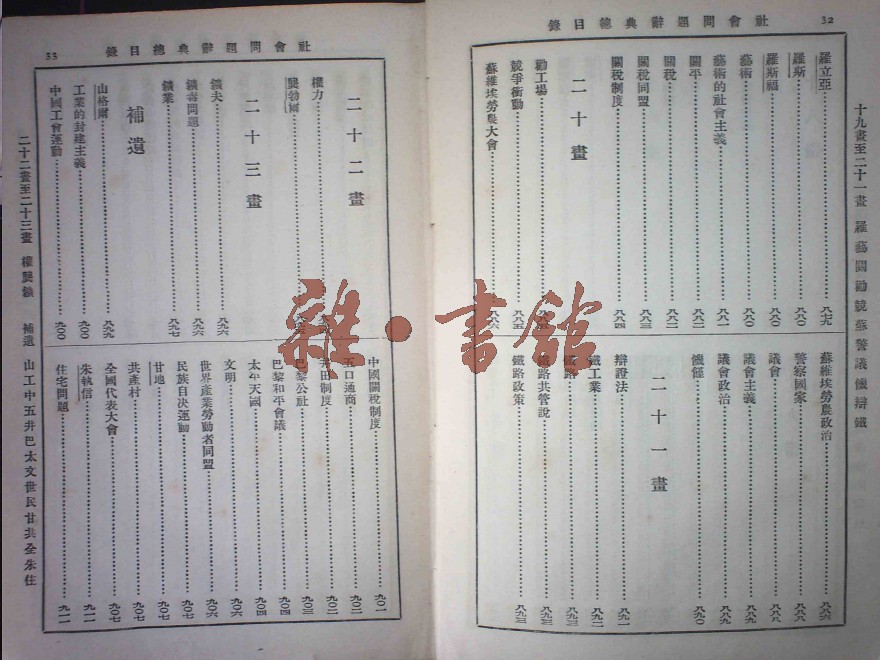 社會問題辭典總目錄
32
十九畫至二十一畫 羅藝關勸競蘇警議儀辯鐵
羅立亞 八七九
羅斯 八八〇
羅斯福 八八〇
藝術 八八〇
藝術的社會主義 八八一
關平 八八二
關稅 八八二
關稅同盟 八八三
關稅制度 八八四
二十畫
勸工場
競爭衝動 八八五
蘇維埃勞農大會 八八六
蘇維埃勞農政治 八八六
警察國家 八八八
議會 八八八
議會主義 八八九
議會政治 八八九
八九〇
二十一畫
辯證法 八九一
鐵工業 八九二
鐵路 八九三
鐵路共管說 八九三
鐵路政策 八九三
社會問題辭典總目錄
33
二十二畫
權力
龔勃爾
二十三畫
鑛夫 八九六
鑛毒問題 八九六
鑛業 八九七
補遺
山格爾 八九九
工業的封建主義 九〇〇
中國工會運動 九〇〇
中國關稅制度 九〇一
五口通商 九〇二
井田制度 九〇二
巴黎公社 九〇三
巴黎和平會議 九〇四
太平天國 九〇四
文明 九〇六
世界產業勞動者同盟 九〇六
民族自決運動 九〇七
甘地 九〇七
共產村 九〇七
全國代表大會 九〇七
朱執信 九一一
住宅問題 九一一
二十二畫至二十三畫 權龔鑛 補遺 山工中五井巴太文世民甘共全朱住
雜·書館